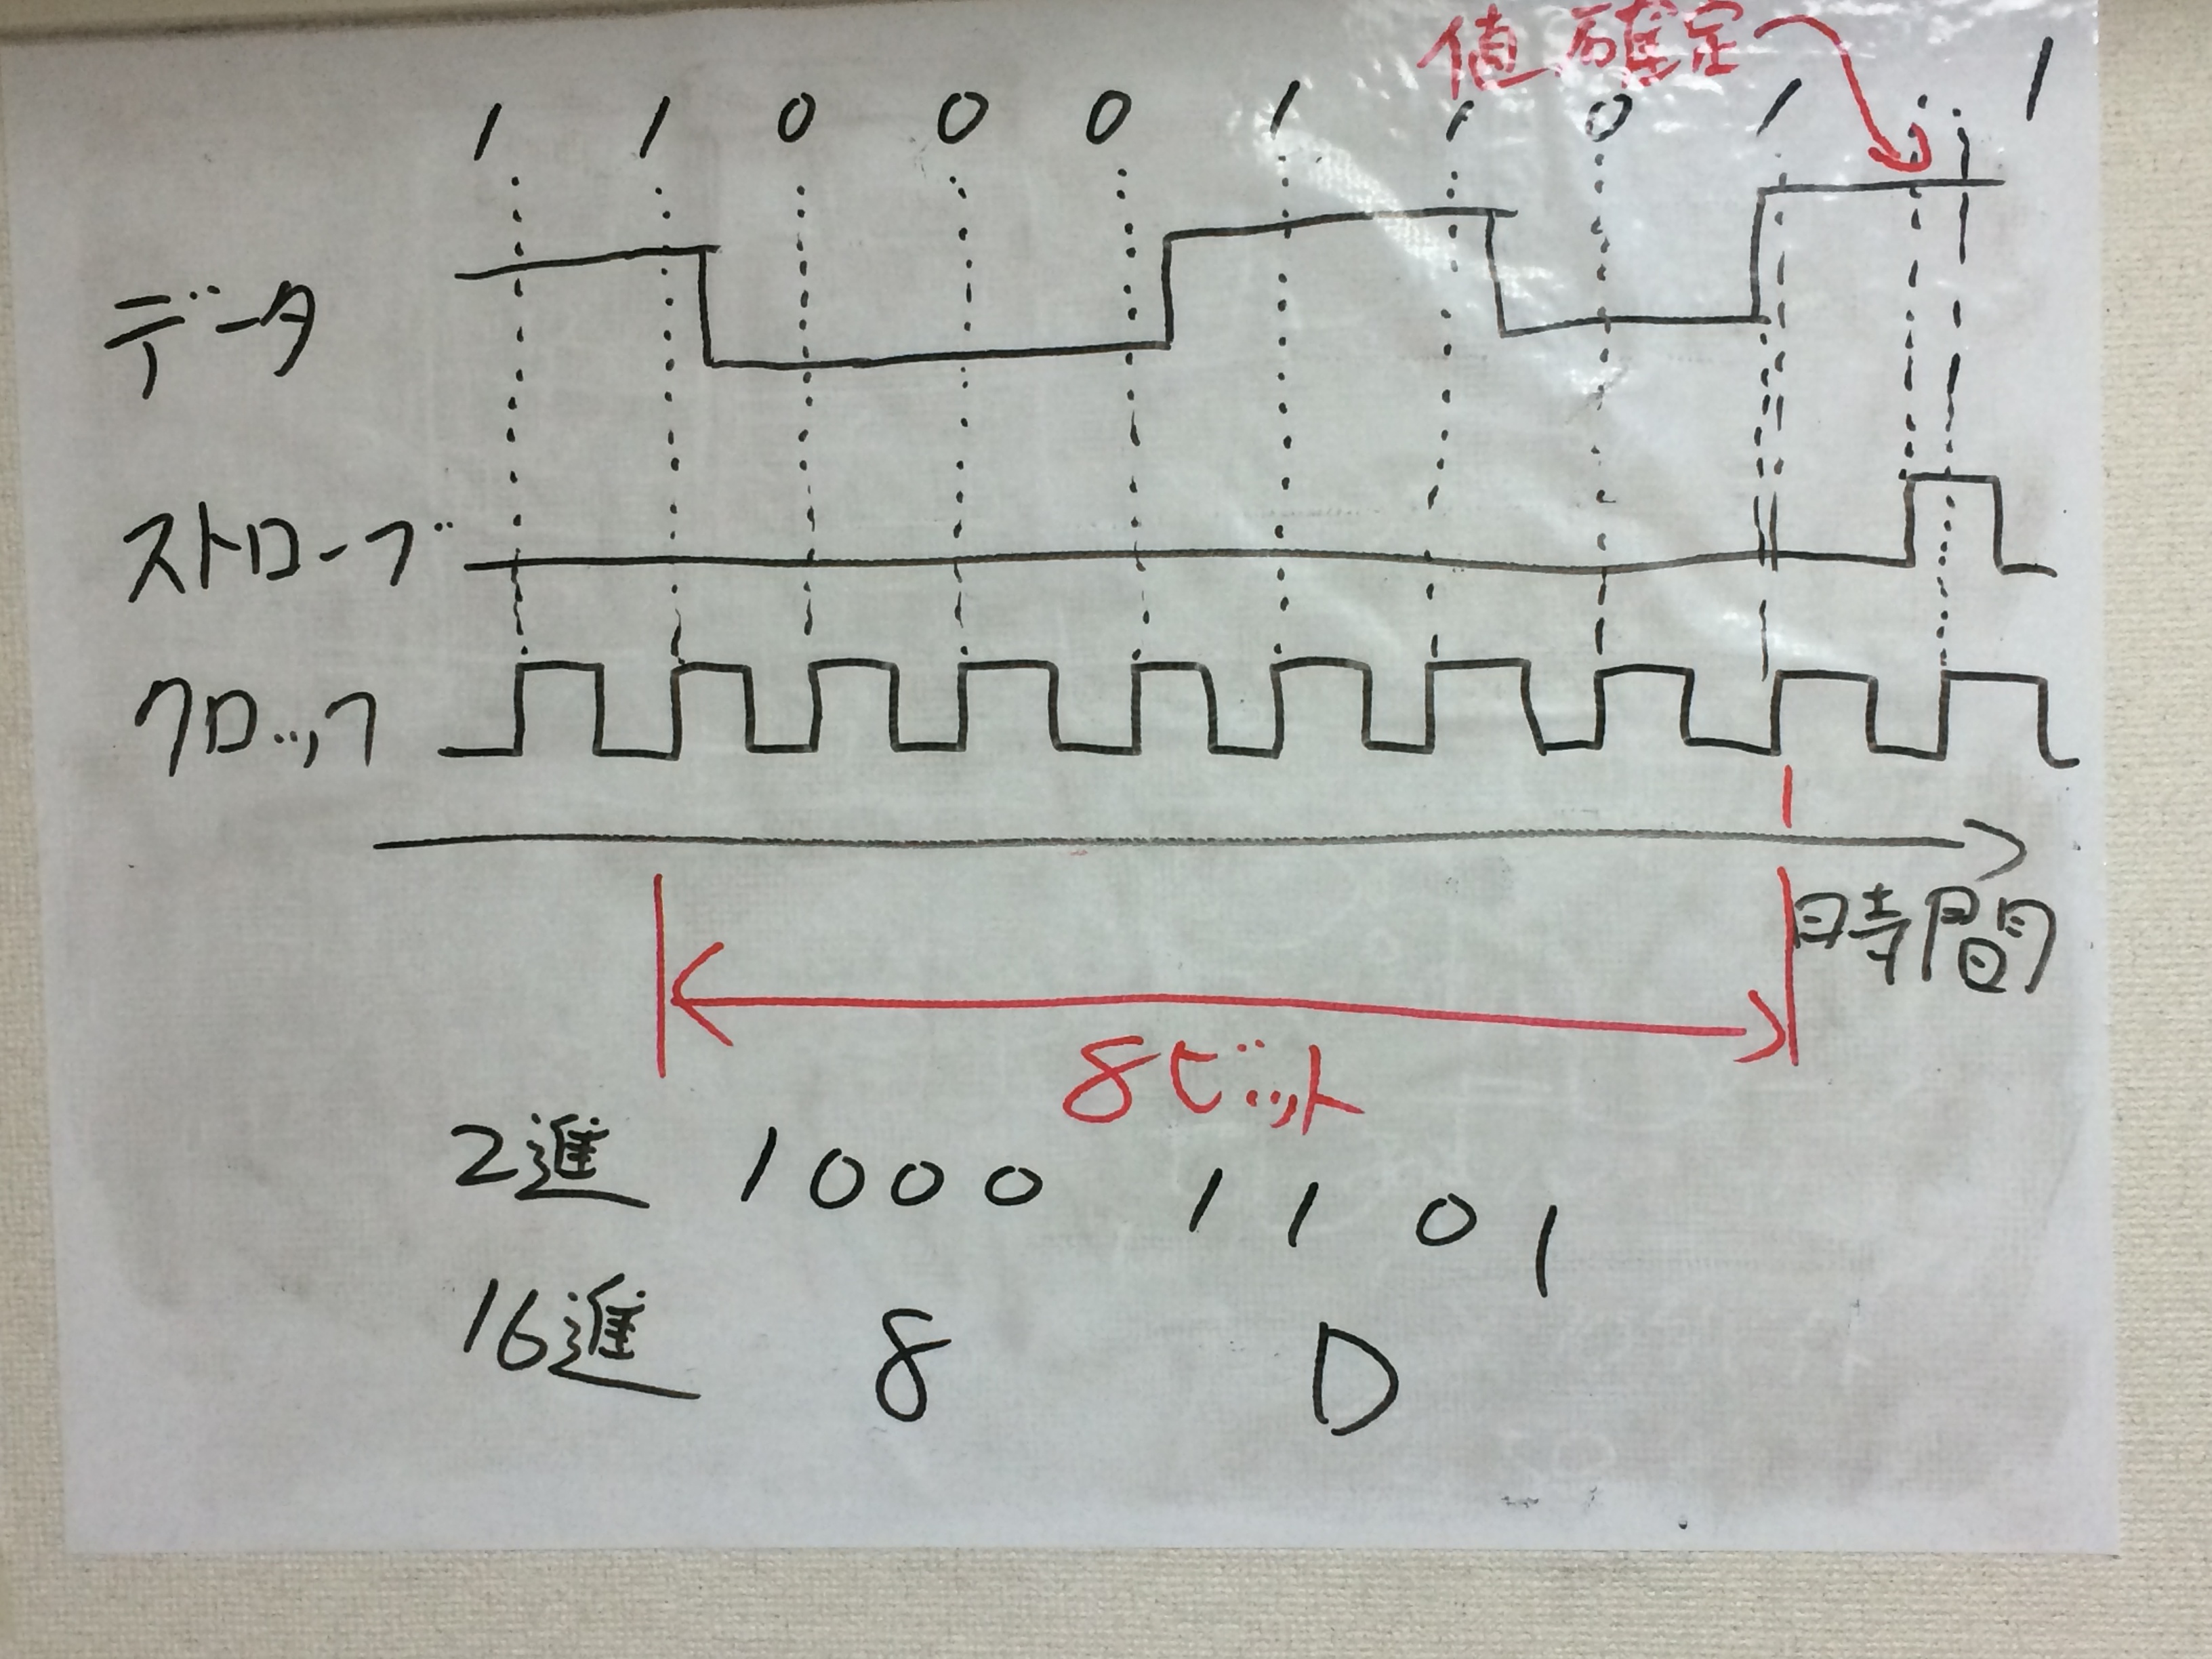 値確定
1 1 0 0 0 1 1 0 1 1
データ
ストローブ
クロック
時間
8ビット
2進 1000 1101
16進 8 D